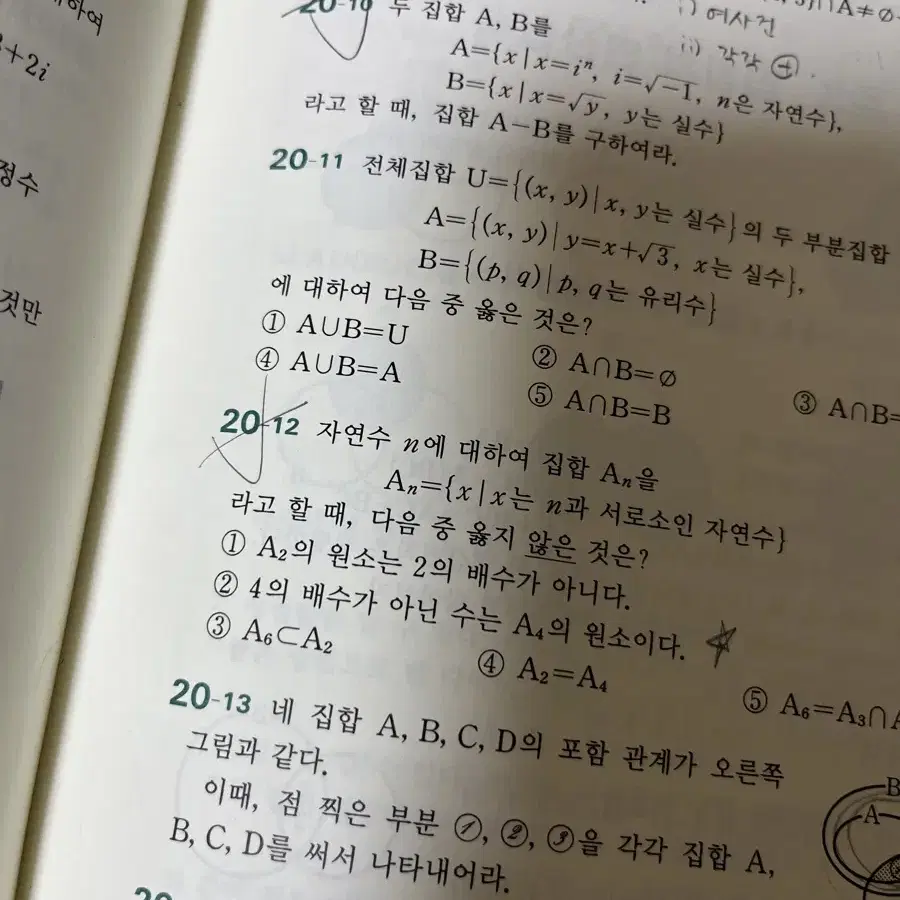 하여
+2i
정수
것만
i) 여사건
∩A≠∅
ii) 각각 ⊕.
20-10 두 집합 A, B를
A={x|x=iⁿ, i=√-1, n은 자연수},
B={x|x=√y, y는 실수}
라고 할 때, 집합 A-B를 구하여라.
20-11 전체집합 U={(x, y)|x, y는 실수}의 두 부분집합
A={(x, y)|y=x+√3, x는 실수},
B={(p, q)|p, q는 유리수}
에 대하여 다음 중 옳은 것은?
① A∪B=U ② A∩B=∅ ③ A∩B=
④ A∪B=A ⑤ A∩B=B
20-12 자연수 n에 대하여 집합 Aₙ을
Aₙ={x|x는 n과 서로소인 자연수}
라고 할 때, 다음 중 옳지 않은 것은?
① A₂의 원소는 2의 배수가 아니다.
② 4의 배수가 아닌 수는 A₄의 원소이다.
③ A₆⊂A₂ ④ A₂=A₄ ⑤ A₆=A₃∩A
20-13 네 집합 A, B, C, D의 포함 관계가 오른쪽
그림과 같다.
이때, 점 찍은 부분 ①, ②, ③을 각각 집합 A,
B, C, D를 써서 나타내어라.
B
A
20